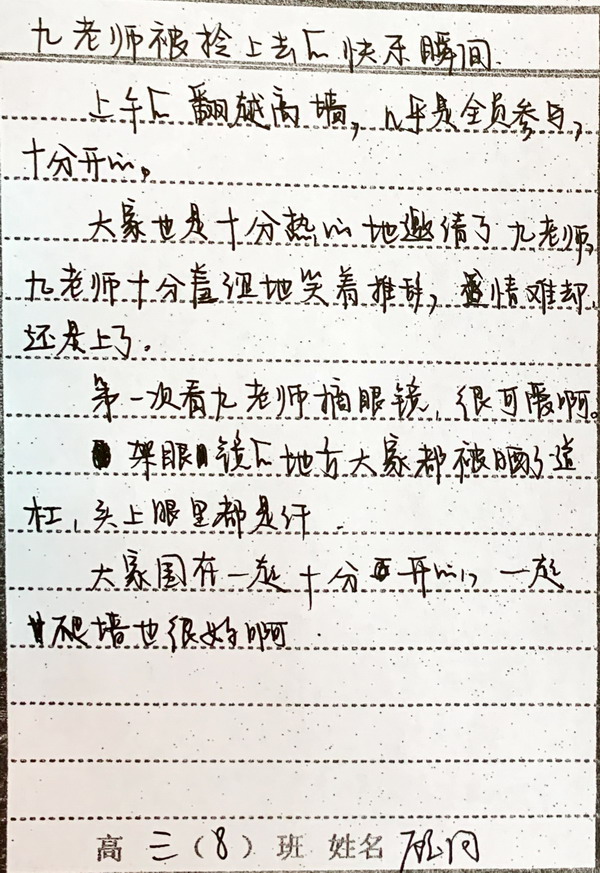 九老师被抢上去的快乐瞬间.
上午的翻越高墙，几乎是全员参与，
十分开心。
大家也是十分热心地邀请了九老师，
九老师十分羞涩地笑着推辞，盛情难却，
还是上了。
第一次看九老师摘眼镜，很可爱啊。
架眼镜的地方大家都被晒了道
杠，头上眼里都是汗.
大家围在一起十分开心，一起
爬墙也很好啊.
高三(8)班 姓名